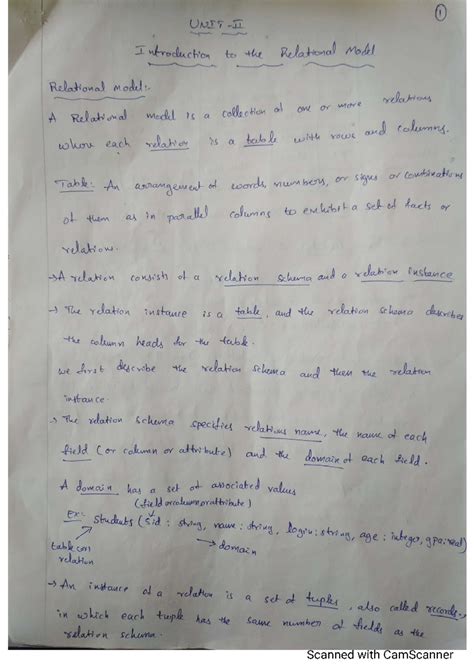 ①
UNIT-II
Introduction to the Relational Model
Relational model:-
A Relational model is a collection of one or more relations
whore each relation is a table with rows and columns.
Table: An arrangement of words, numbers, or signs or combinations
of them as in parallel columns to exhibit a set of facts or
relations.
→A relation consists of a relation schema and a relation instance
→ The relation instance is a table, and the relation schema describes
the column heads for the table.
we first describe the relation schema and then the relation
instance.
→ The relation schema specifies relations name, the name of each
field (or column or attribute) and the domain of each field.
A domain has a set of associated values
(field or column or attribute)
Ex: Students (sid : string, name : string, login : string, age : integer, gpa: real)
table (or)
relation
→ domain
→ An instance of a relation is a set of tuples, also called records,
in which each tuple has the same number of fields as the
relation schema.
Scanned with CamScanner